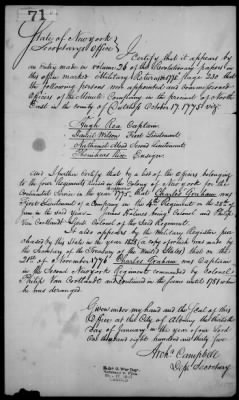 71
State of New york
Secretary's Office
I Certify that it appears by
an entry made in volume 24 of the Revolutionary papers in
this office marked Military Returns 1775, page 230 that
the following persons were appointed and commissioned
Officers of the Minute Company in the precinct of North
East in the county of Dutchess October 17, 1775 viz
Hugh Rea Captain
Wilson First Lieutenant
Nathaniel Second Lieutenant
Ensign
And I further Certify that by a list of the officers belonging
to the four Regiments raised in the Colony of New York for the
Continental Service in the year 1775 that Charles Graham was
First Lieutenant of a Company in the 4th Regiment on the 28th of
June in the said Year James Holmes being Colonel and Philip
Van Cortlandt Lieut. Colonel of the said Regiment.
It also appears by the Military Register pur-
chased by this State in the year 1828 (a copy of which was made by
the Secretary of the Treasury of the United States) that on the
21st of November 1776 Charles Graham was Captain
in the Second New york Regiment commanded by Colonel
Philip Van Cortlandt and continued in the same until 1781 when
he was deranged.
Given under my hand and the Seal of this
Office at the City of Albany the
day of January in the year of our Lord
One thousand eight hundred and thirty five
Archd Campbell
Dep. Secretary